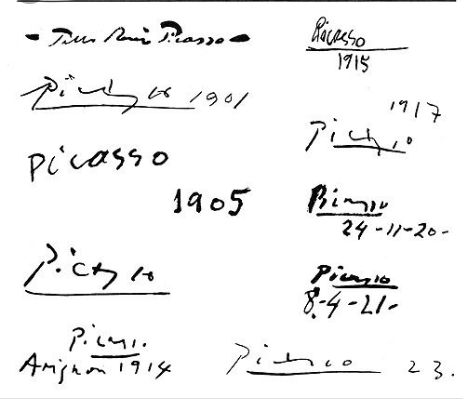 Ruiz Picasso
Picasso 1901
Picasso
1905
Picasso
Picasso
Avignon 1914
Picasso
1915
1917
Picasso
Picasso
24-11-20-
Picasso
8-4-21-
Picasso 23.